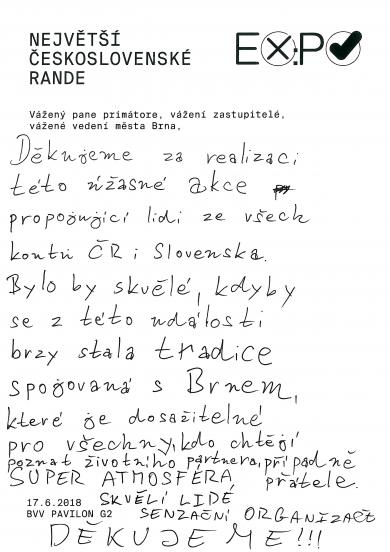 NEJVĚTŠÍ
ČESKOSLOVENSKÉ
RANDE
EX:PO
Vážený pane primátore, vážení zastupitelé,
vážené vedení města Brna,
Děkujeme za realizaci
této úžasné akce
propojující lidi ze všech
koutů ČR i Slovenska.
Bylo by skvělé, kdyby
se z této události
brzy stala tradice
spojovaná s Brnem,
které je dosažitelné
pro všechny, kdo chtějí
poznat životního partnera, případně
SUPER ATMOSFÉRA, přátele.
17.6.2018 SKVĚLÍ LIDÉ
BVV PAVILON G2 SENZAČNÍ ORGANIZACE
DĚKUJEME!!!